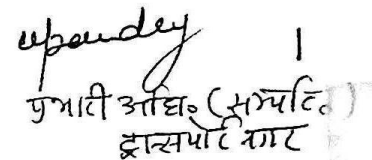 upandey
प्रभारी अधि० (सम्पत्ति)
ट्रान्सपोर्ट नगर